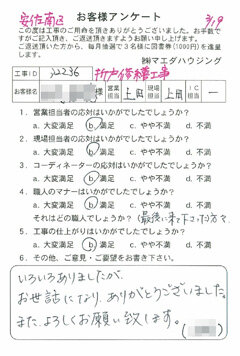 安佐南区 お客様アンケート 3/9
この度は工事のご用命を頂きありがとうございました。お手数
ですがご記入頂き、ご返送頂きますようお願い申し上げます。
ご返送頂いた方から、毎月抽選で3名様に図書券(1000円)を進呈
します。
㈱マエダハウジング
工事ID 32236 折戸修繕工事
お客様名 営業担当 土岡 現場担当 土岡 IC担当 ー
1. 営業担当者の応対はいかがでしたでしょうか?
a. 大変満足 b. 満足 c. やや不満 d. 不満
2. 現場担当者の応対はいかがでしたでしょうか?
a. 大変満足 b. 満足 c. やや不満 d. 不満
3. コーディネーターの応対はいかがでしたでしょうか?
a. 大変満足 b. 満足 c. やや不満 d. 不満
4. 職人のマナーはいかがでしたでしょうか?
a. 大変満足 b. 満足 c. やや不満 d. 不満
それはどの職人でしょうか?(最後に来て下さった方です)
5. 工事の仕上がりはいかがでしたでしょうか?
a. 大変満足 b. 満足 c. やや不満 d. 不満
6. その他、ご意見・ご要望をお書き下さい。
いろいろありましたが、
お世話になり、ありがとうございました。
また、よろしくお願い致します。